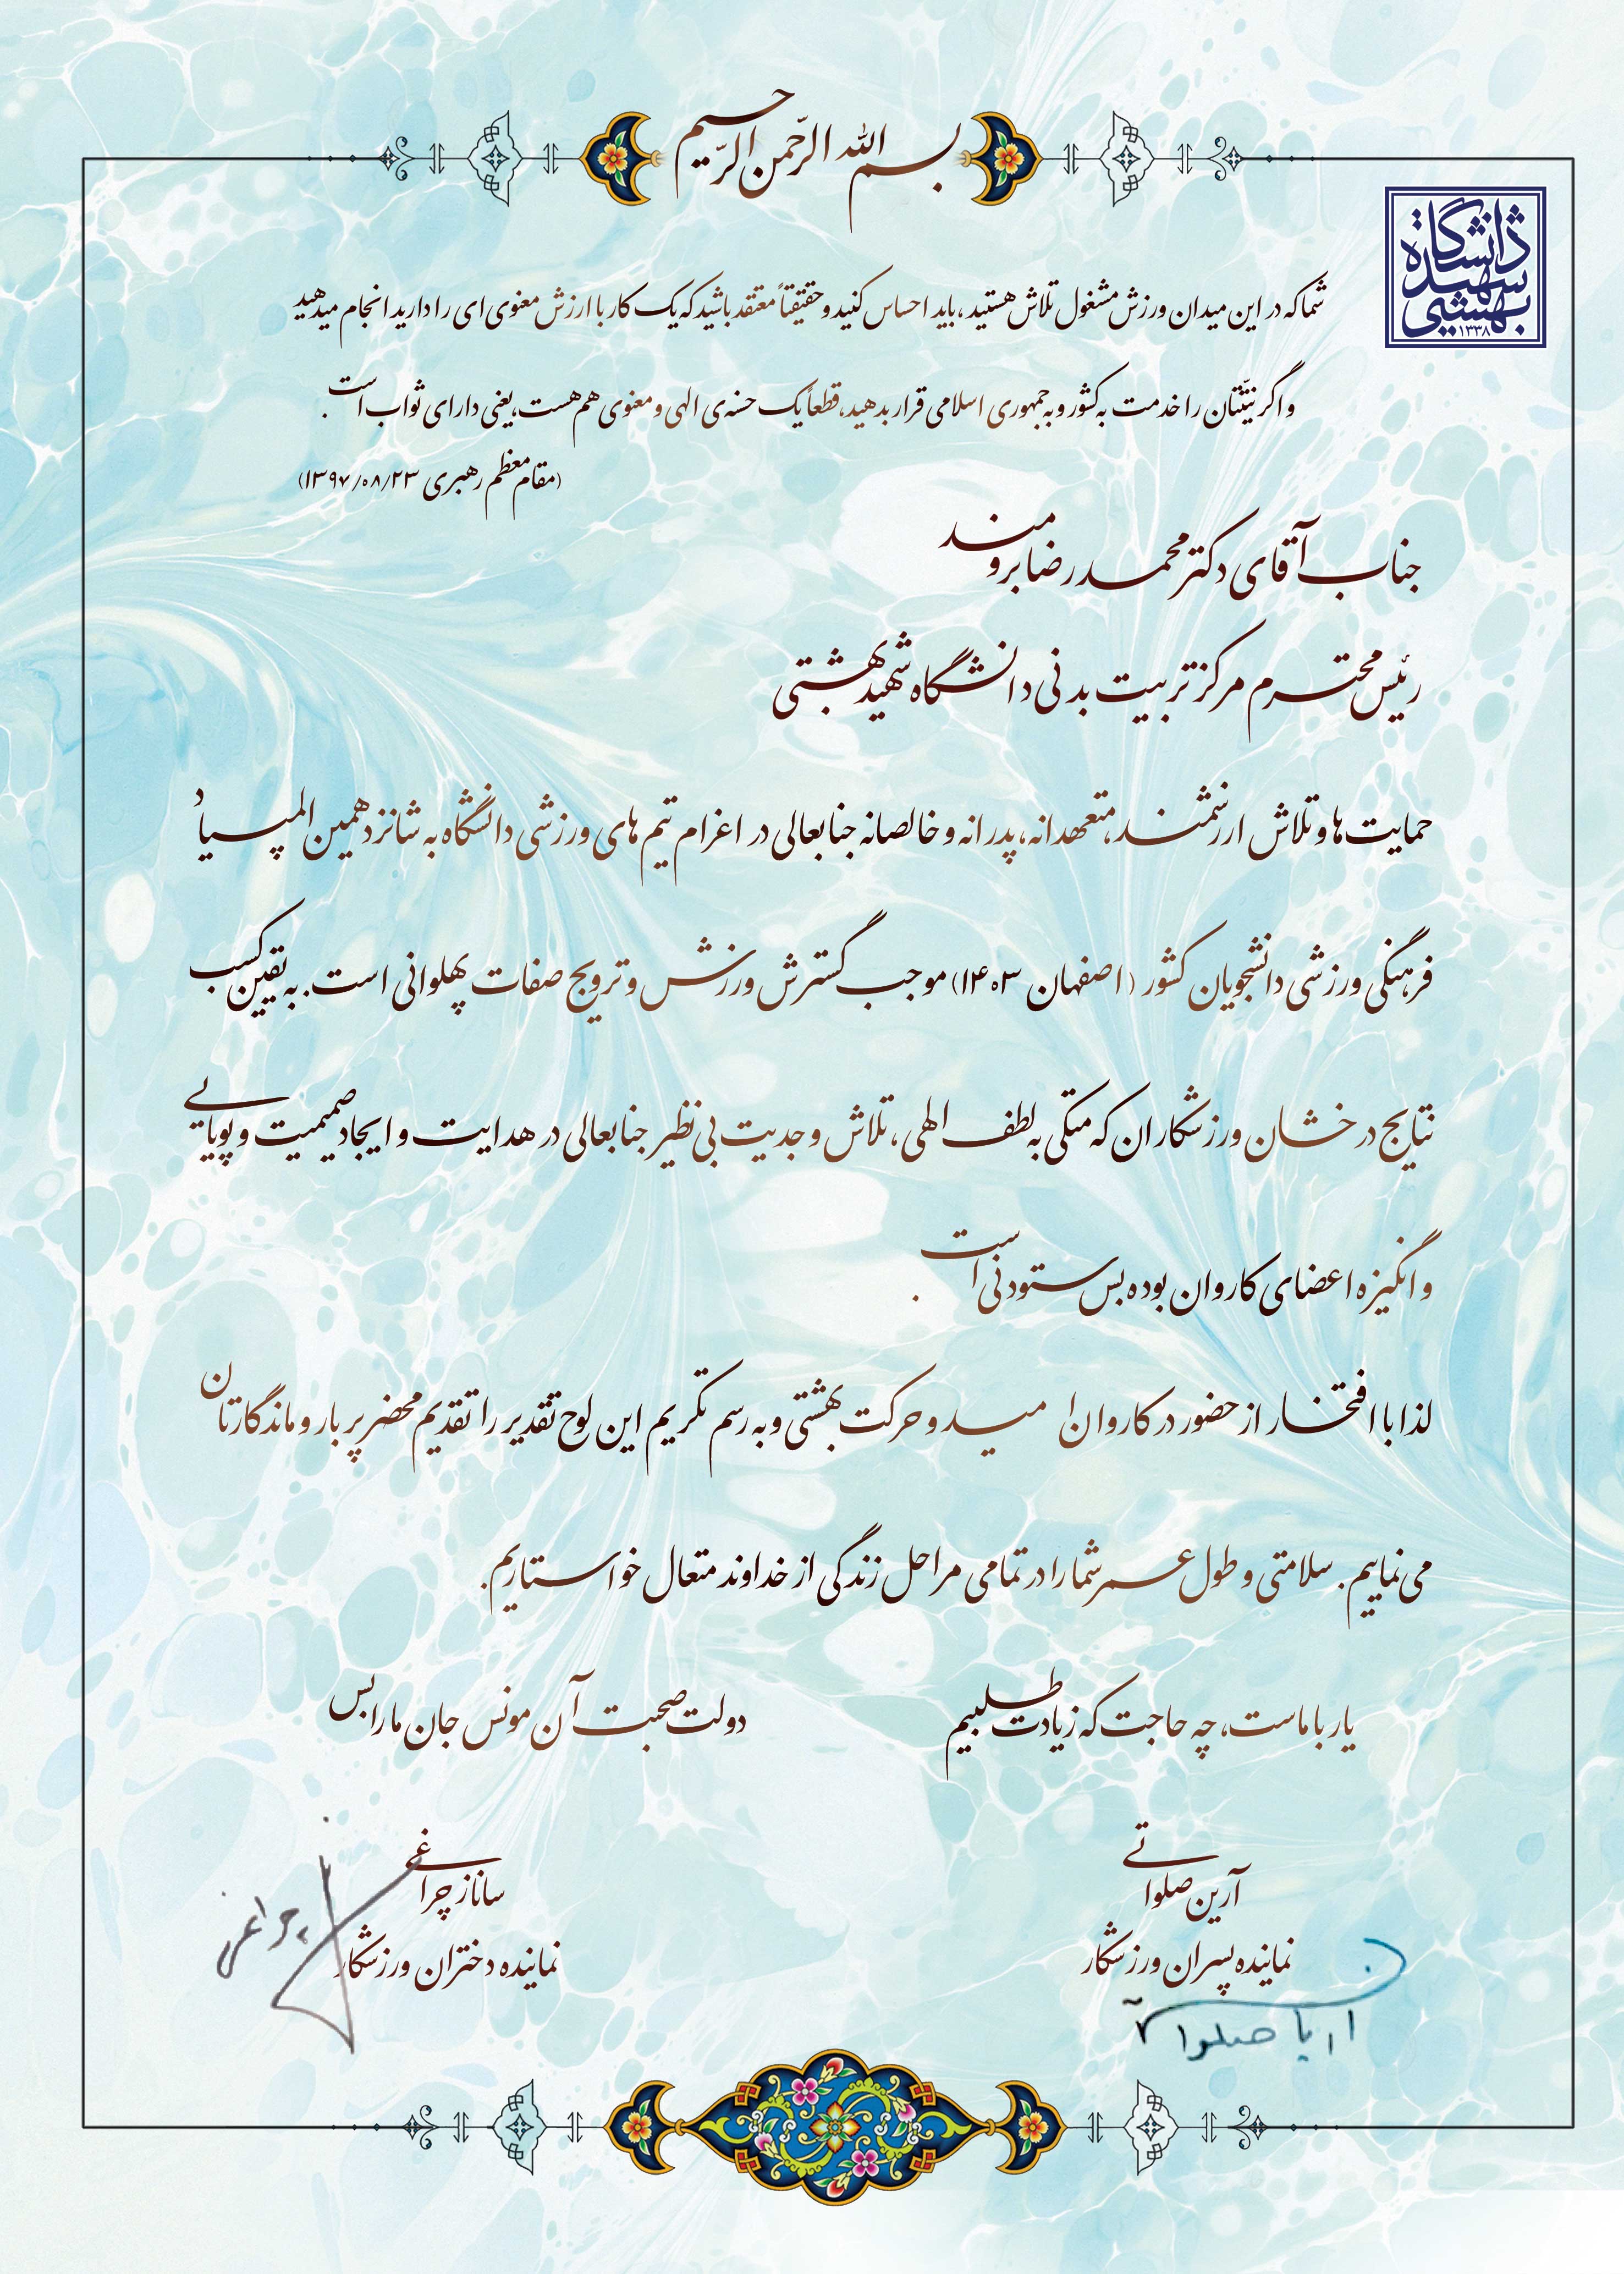 بسم الله الرّحمن الرّحیم
دانشگاه
شهید
بهشتی
۱۳۳۸
شما که در این میدان ورزش مشغول تلاش هستید، باید احساس کنید و حقیقتاً معتقد باشید که یک کار با ارزش معنوی ای را دارید انجام میدهید
و اگر نیّتتان را خدمت به کشور و به جمهوری اسلامی قرار بدهید، قطعاً یک حسنه‌ی الهی و معنوی هم هست، یعنی دارای ثواب است.
(مقام معظم رهبری ۱۳۹۷/۰۸/۲۳)
جناب آقای دکتر محمدرضا برومند
رئیس محترم مرکز تربیت بدنی دانشگاه شهید بهشتی
حمایت ها و تلاش ارزشمند، متعهدانه، پدرانه و خالصانه جنابعالی در اعزام تیم های ورزشی دانشگاه به شانزدهمین المپیاد
فرهنگی ورزشی دانشجویان کشور (اصفهان ۱۴۰۳) موجب گسترش ورزش و ترویج صفات پهلوانی است. به یقین کسب
نتایج درخشان ورزشکاران که متکی به لطف الهی، تلاش و جدیت بی نظیر جنابعالی در هدایت و ایجاد صمیمیت و پویایی
و انگیزه اعضای کاروان بوده بس ستودنی است.
لذا با افتخار از حضور در کاروان امید و حرکت بهشتی و به رسم تکریم این لوح تقدیر را تقدیم محضر پربار و ماندگارتان
می نماییم. سلامتی و طول عمر شما را در تمامی مراحل زندگی از خداوند متعال خواستاریم.
یار با ماست، چه حاجت که زیادت طلبیم دولت صحبت آن مونس جان ما را بس
آرین صلواتی
نماینده پسران ورزشکار
ساناز چراغی
نماینده دختران ورزشکار